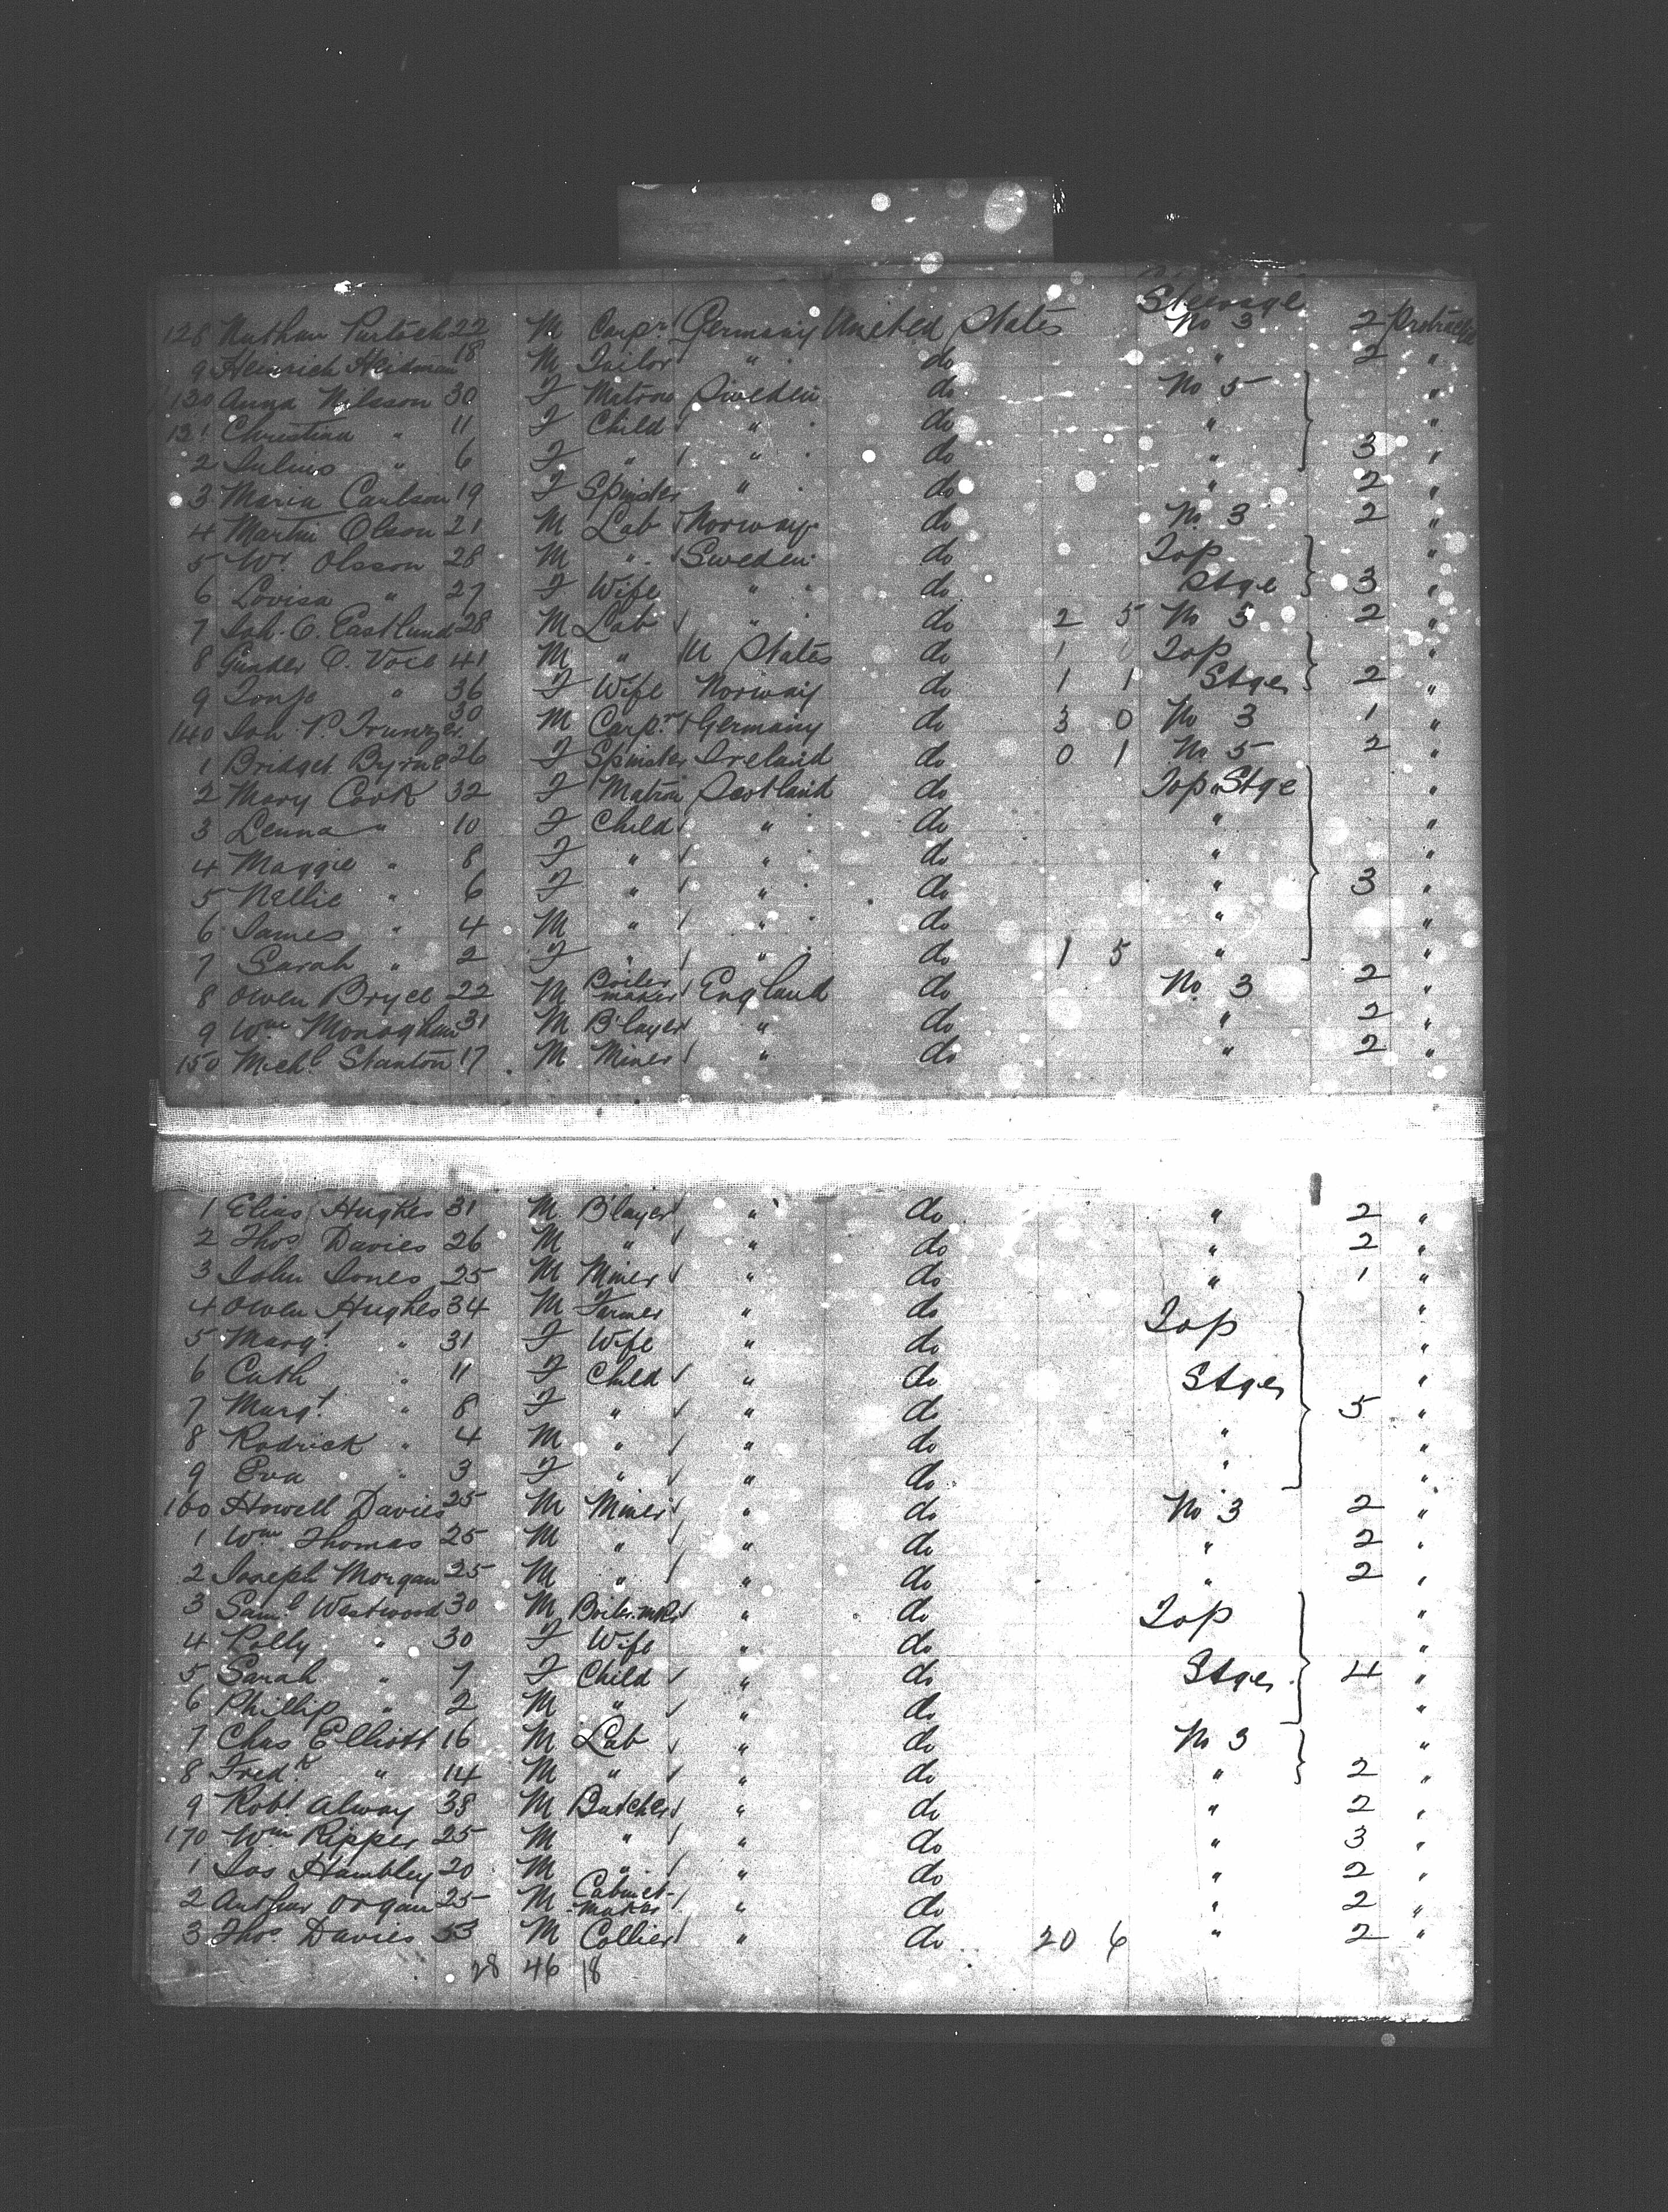 Steerage
128 Nathan Purtsch 22 M Carpr Germany United States No 3 2 Protracted
9 Heinrich Heidman 18 M Tailor " do " 2 "
130 Anna Nilsson 30 F Matron Sweden do No 5 "
131 Christina " 11 F Child " do " "
2 Julius " 6 F " " do " 3 "
3 Maria Carlson 19 F Spinster " do " 2 "
4 Martin Olson 21 M Lab Norway do No 3 2 "
5 Wr. Olsson 28 M " Sweden do Top "
6 Lovisa " 27 F Wife " do Stge 3 "
7 Joh. O. Eastlund 28 M Lab " do 2 5 No 3 2 "
8 Gunder O. Voie 41 M " U States do 1 1 Top "
9 Tonje " 36 F Wife Norway do 1 1 Stge 2 "
140 Joh. P. Trunzer 30 M Carpr Germany do 3 0 No 3 1 "
1 Bridget Byrne 26 F Spinster Ireland do 0 1 No 5 2 "
2 Mary Cook 32 F Matron Scotland do Top Stge "
3 Lenna " 10 F Child " do " "
4 Maggie " 8 F " " do " "
5 Nellie " 6 F " " do " 3 "
6 James " 4 M " " do " "
7 Sarah " 2 F " " do 1 5 " "
8 Owen Bryce 22 M Boiler maker England do No 3 2 "
9 Wm Monaghan 31 M B'layer " do " 2 "
150 Michl Stanton 17 M Miner " do " 2 "
1 Elias Hughes 31 M B'layer " do " 2 "
2 Thos Davies 26 M " " do " 2 "
3 John Jones 25 M Miner " do " 1 "
4 Owen Hughes 34 M Farmer " do Top "
5 Margt " 31 F Wife " do "
6 Cath " 11 F Child " do Stge "
7 Margt " 8 F " " do 5 "
8 Rodrick " 4 M " " do " "
9 Eva " 3 F " " do " "
160 Howell Davies 25 M Miner " do No 3 2 "
1 Wm Thomas 25 M " " do " 2 "
2 Joseph Morgan 25 M " " do " 2 "
3 Saml Westwood 30 M Boiler mkr " do Top "
4 Polly " 30 F Wife " do "
5 Sarah " 7 F Child " do Stge 4 "
6 Phillip " 2 M " " do "
7 Chas Elliott 16 M Lab " do No 3 "
8 Fredk " 14 M " " do " 2 "
9 Robt Alway 38 M Butcher " do " 2 "
170 Wm Ripper 25 M " " do " 3 "
1 Jos Hambley 20 M " " do " 2 "
2 Arthur Organ 25 M Cabinet-maker " do " 2 "
3 Thos Davies 53 M Collier " do 20 6 " 2 "
28 46 18